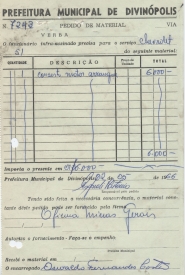 PREFEITURA MUNICIPAL DE DIVINÓPOLIS
N. 7243 PEDIDO DE MATERIAL VIA
VERBA
O funcionário infra-assinado precisa para o serviço
61 do seguinte material:
QUANTIDADE DESCRIÇÃO Preço da Unidade TOTAL
1 motor 6.000-
6.000-
Importa o presente em 6.000-
Prefeitura Municipal de Divinópolis, de 1966
Tendo sido feita a necessária concorrência, o material constante dêste pedido pode ser fornecido pela firma
Oficina Minas Gerais
Autorizo o fornecimento - Faça-se o empenho.
Recebi o material em
O encarregado Oswaldo Fernandes